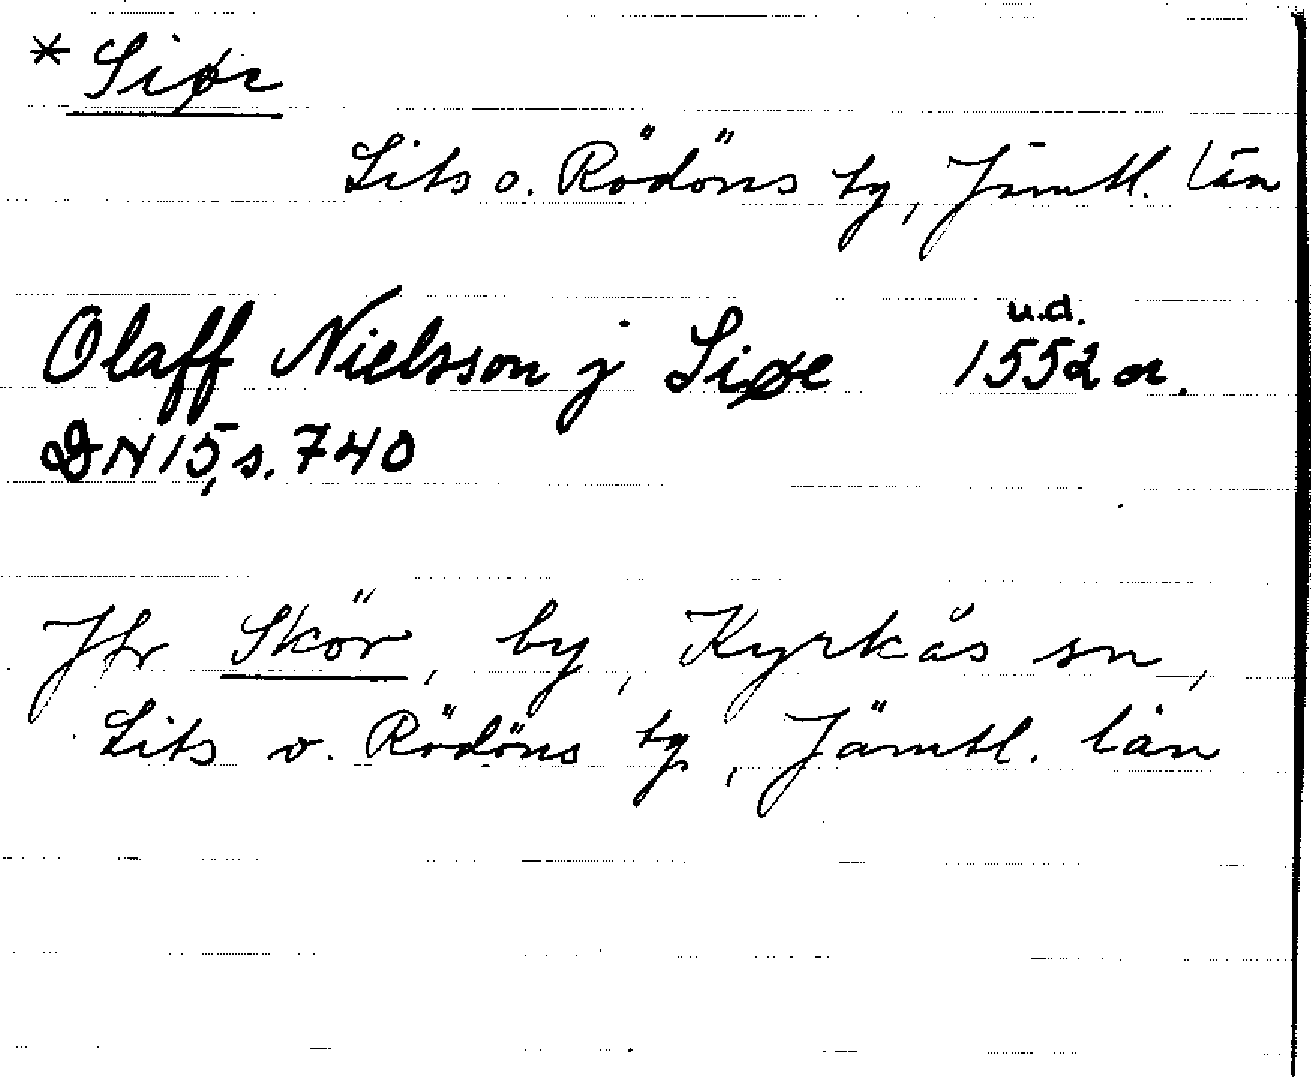 * Siøe
Lits o. Rödöns tg, Jämtl. län
Olaff Nielsson j Siøe u.d. 1552 or.
DN 15, s. 740
Jfr Skör, by, Kyrkås sn,
Lits o. Rödöns tg, Jämtl. län